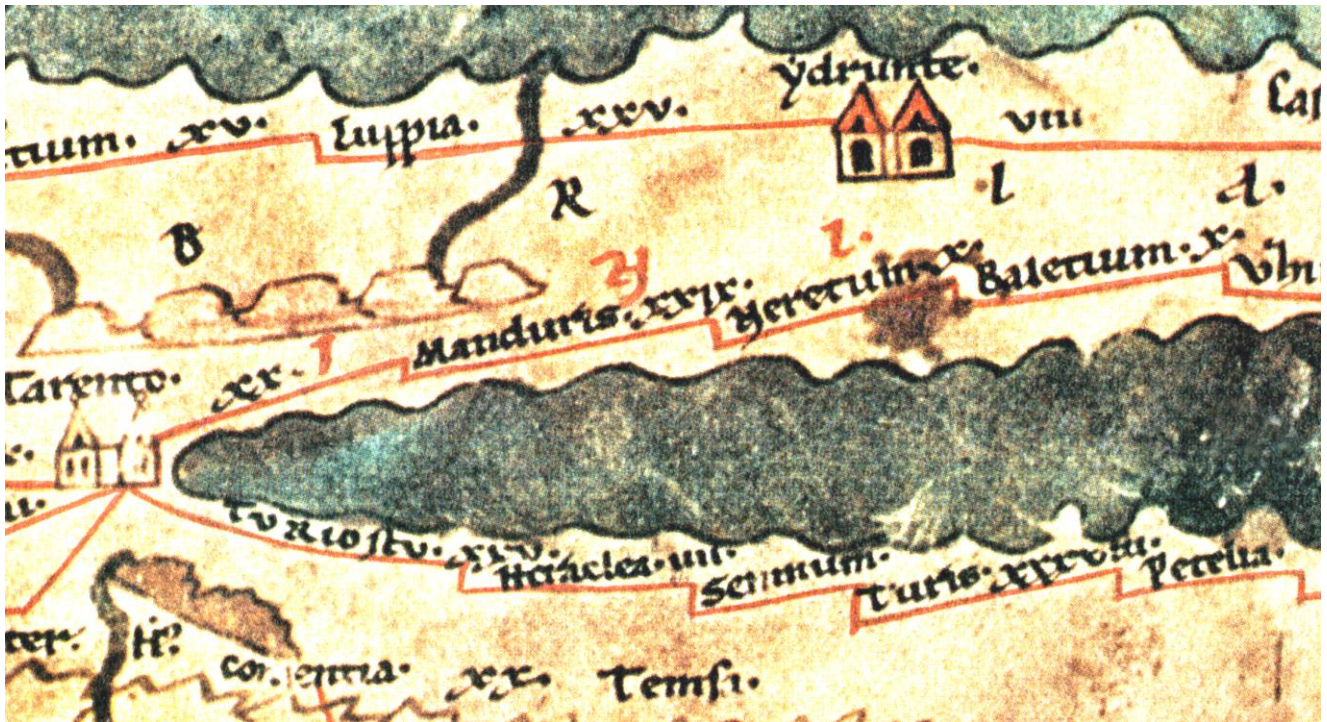 ydrunte.
tium. xv. Luspia. xxv. viii Cas
R .l d.
B
Manduris. xxix. Neretum. x. Baletium. x. Vhi
Tarento. xx.
TVRIOSTV. xlv. Heraclea. iiii. Semnum. Turis. xxxviii. Petelia.
ter. fl. Temsi.
xx.